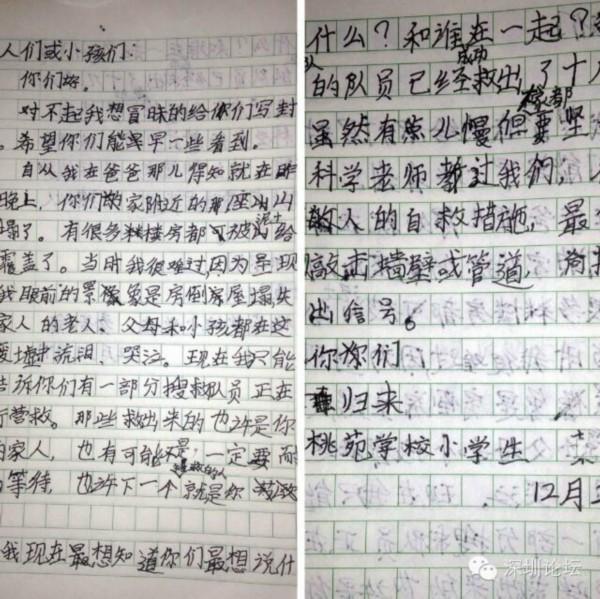 人们或小孩们：
你们好。
对不起我想冒昧的给你们写封
。希望你们能早早一些看到。
自从我在爸爸那儿得知就在昨
晚上，你们家附近的那座山
塌了。有很多楼房都被泥土给
覆盖了。当时我很难过,因为呈现
我眼前的景象是房倒屋塌,失
家人的老人、父母和小孩都在这
废墟中流泪、哭泣。现在我只能
告诉你们有一部分搜救队员正在
行营救。那些救出来的也许是你
的家人，也有可能不是,一定要耐
等待，也许下一个就是你
被救的人
我现在最想知道你们最想说什
什么？和谁在一起？
的队员已经成功救出了十
虽然有点儿慢但要坚
科学老师教过我们：
的人的自救措施，最
敲击墙壁或管道，
出信号。
你你们
归来
桃苑学校小学生
12月
深圳论坛